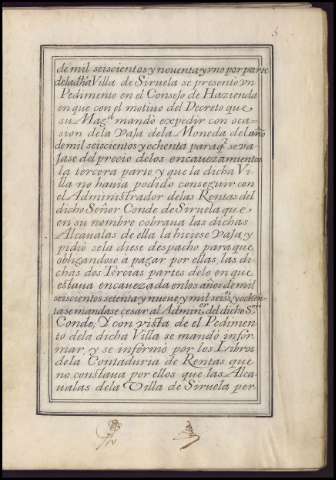 de mil seiscientos y nouenta y vno por parte
de la dha Villa de Siruela se presento vn
Pedimento en el Consejo de Hazienda
en que con el motiuo del Decreto que
su Magd. mando expedir con oca
sion de la vaja de la Moneda del año
de mil seiscientos y ochenta para q.e se va
jase del precio de los encauezamientos
la tercera parte y que la dicha Vi
lla no hauia podido conseguir con
el Administrador de las Rentas del
dicho Señor Conde de Siruela que
en su nombre cobraua las dichas
Alcaualas de ella la hiciese vaja y
pidio se la diese despacho para que
obligandose a pagar por ellas las di
chas dos Tercias partes de lo en que
estaua encauezada en los años de mil
seiscientos setenta y nueue y mil seisos. y ochen
ta se mandase cesar al Adminor. del dicho Sor.
Conde, Y con vista de el Pedimen
to de la dicha Villa se mando infor
mar, y se informó por los Libros
de la Contaduria de Rentas que
no constaua por ellos que las Alca
ualas de la Villa de Siruela per